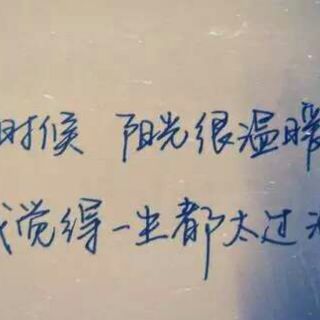 时候 阳光很温暖
我觉得一生都太过